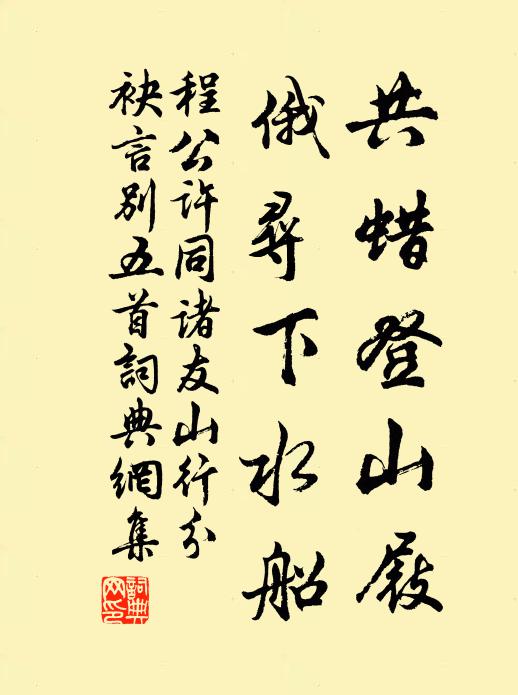 共蜡登山屐
俄寻下水船
程公许同诸友山行分
袂言别五首詞典網集
詞典網印